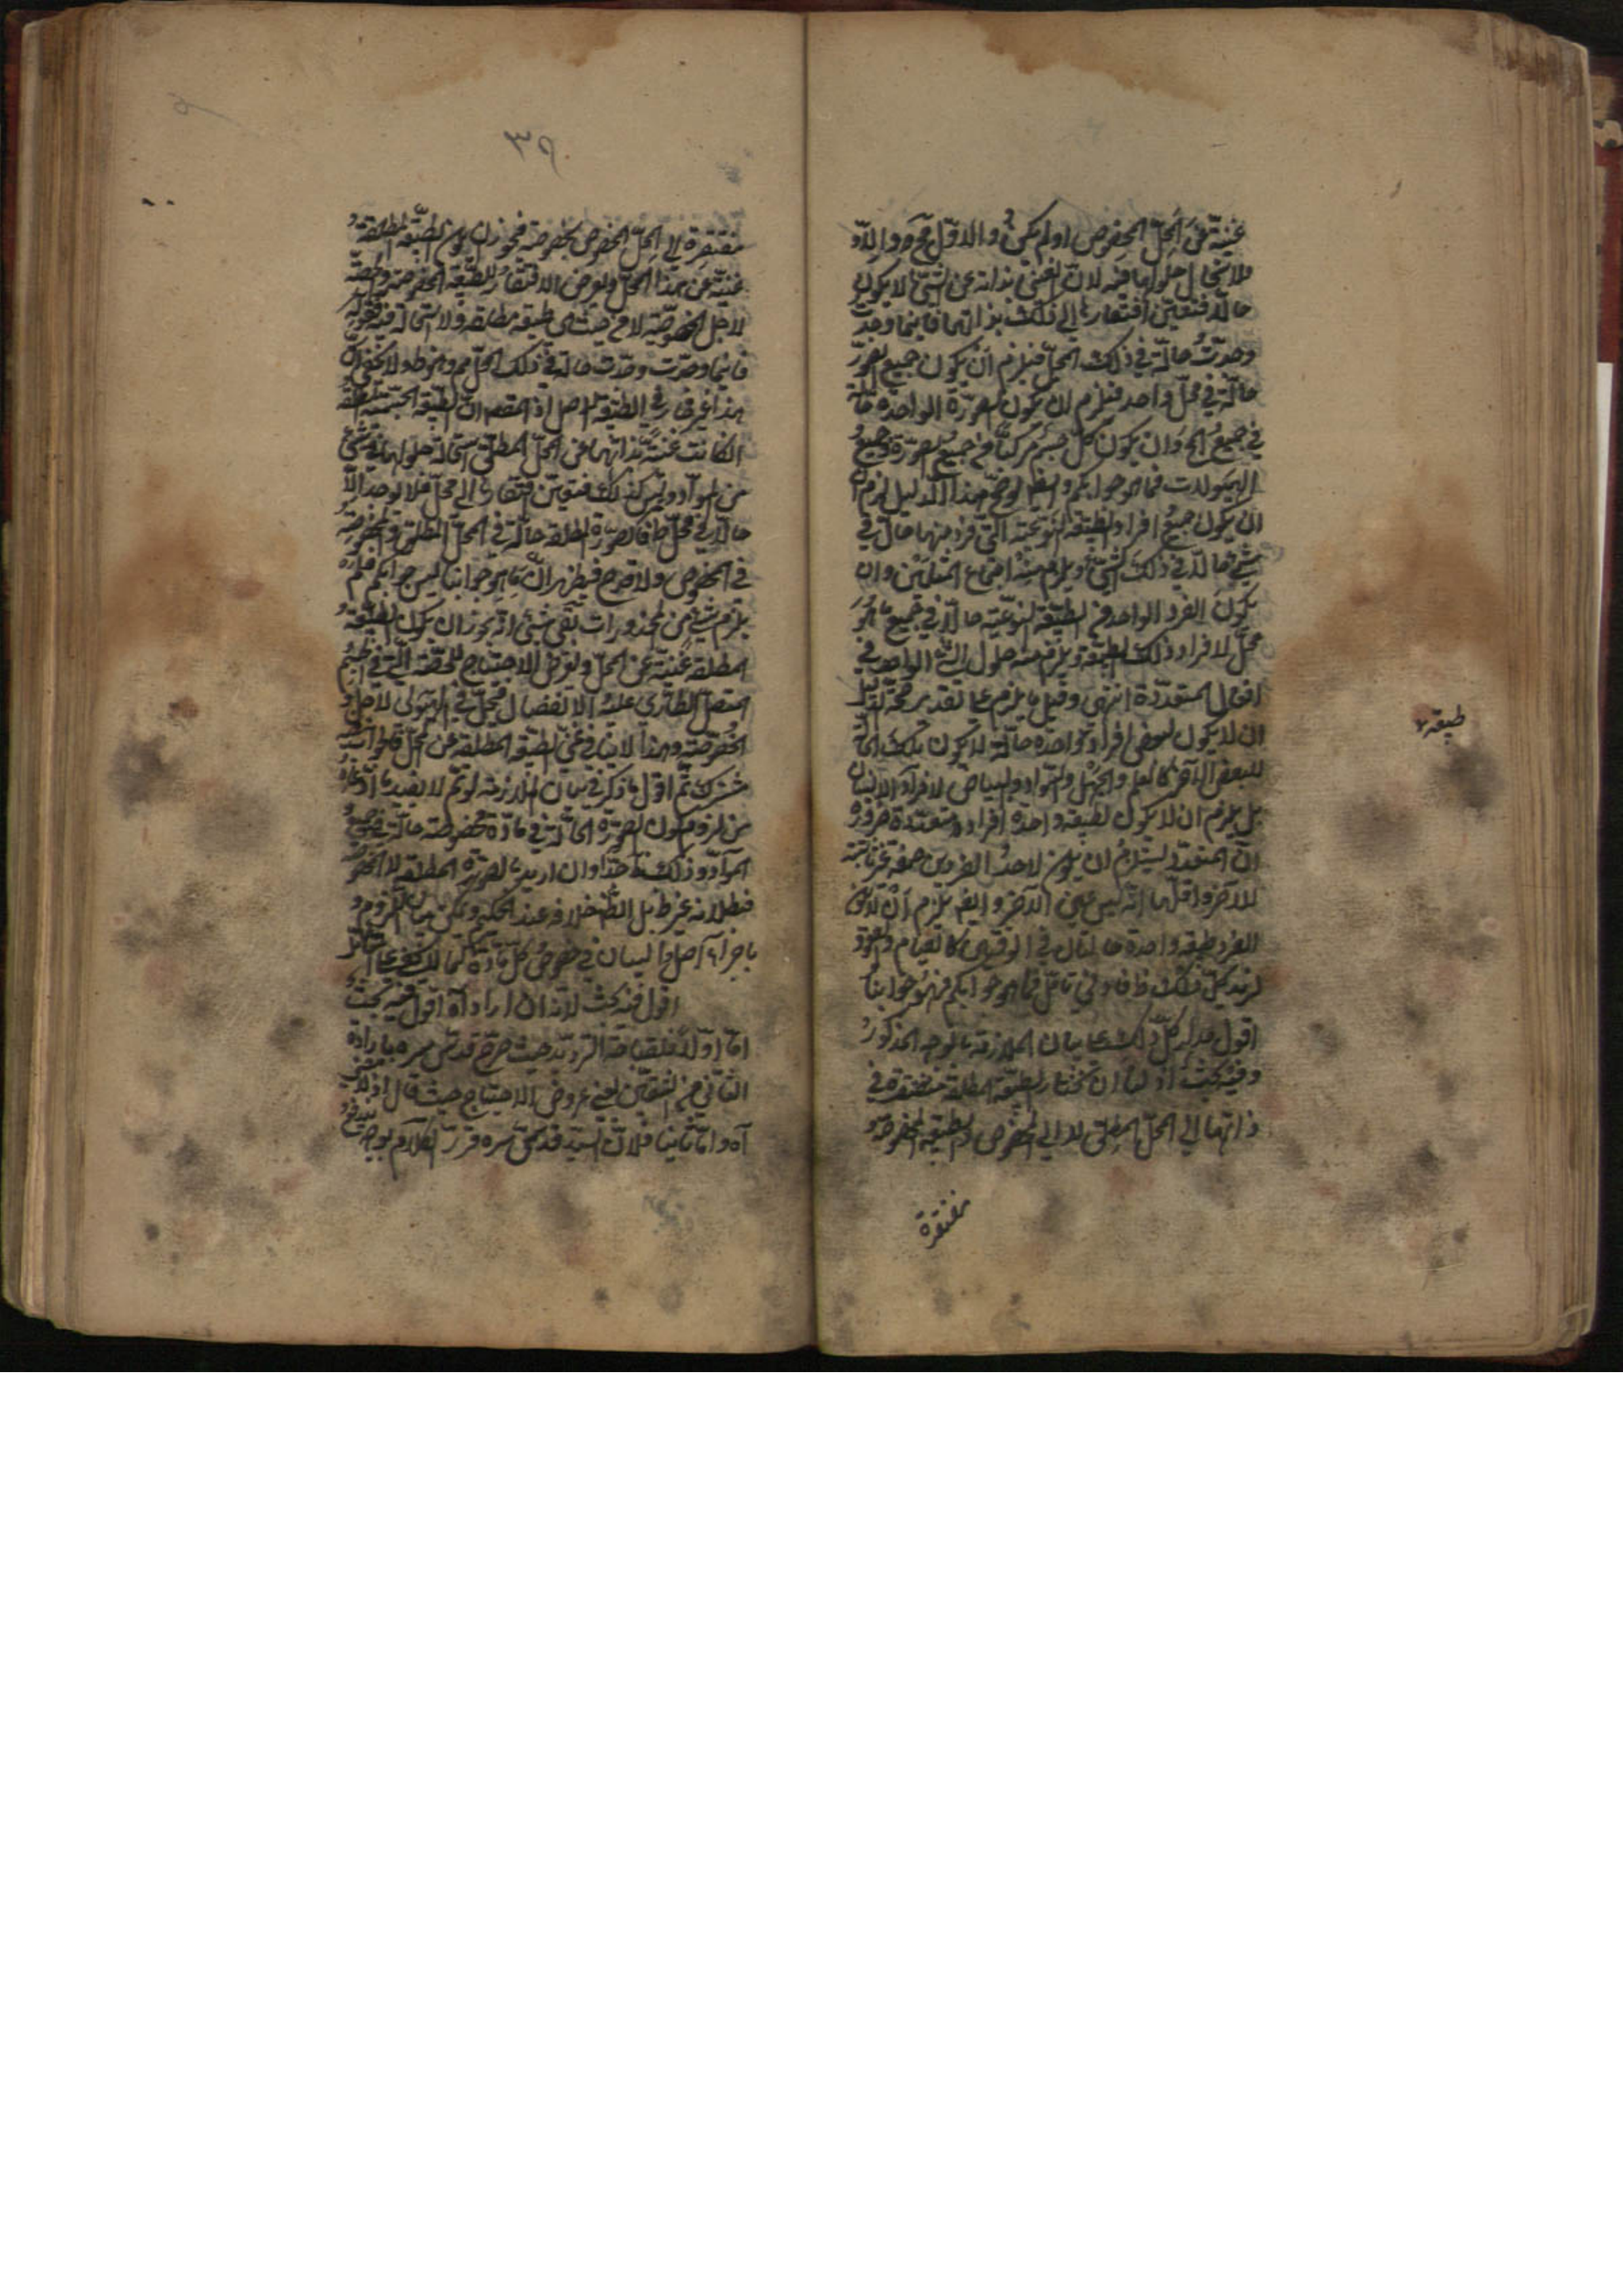 غنية عن المحل المخصوص او لم يكن والاول مجرد والا
فلاستحال حلولها فيه لان الغنى بذاته عن الشئ لا يكون
حالا فتعين افتقارها الى ذلك بذاتها فاينما وجدت
وجدت حالة في ذلك المحل فيلزم ان يكون جميع الصور
حالة في محل واحد فيلزم ان يكون الصورة الواحدة حالة
في جميع المحال وان يكون كل جسم مركبا من جميع الصورة وجميع
الهيولات فما هو جوابكم وايضا لو صح هذا الدليل لزم ان
ان يكون جميع افراد الطبيعة النوعية التى فرد منها حال في
شئ حالا في ذلك الشئ ويلزم منه اجتماع المثلين وان
يكون الفرد الواحد من الطبيعة النوعية حالا في جميع ما هو
محل لافراد ذلك الطبيعة ويلزم منه حلول الشئ الواحد في
المحال المتعددة انتهى وقيل يلزم على تقدير صحة الدليل
ان لا يكون لبعض افراد واحدة حالة لا يكون تلك الحالة
طبيعة
للبعض الآخر كالعلم والجهل والسواد والبياض لافراد الانسان
بل يلزم ان لا يكون لطبيعة واحدة افراد متعددة ضرورة
ان المتعدد يستلزم ان يكون لاحد الفردين صفة غير ثابتة
للآخر واقلها انه ليس عين الآخر وايضا يلزم ان لا يكون
لفرد طبيعة واحدة حالتان في الوقتين كالقيام والقعود
لزيد بكل ذلك ظ فان في تامل فما هو جوابكم فهو جوابنا
اقول مدار كل ذلك على بيان الملازمة بالوجه المذكور
وفيه بحث اذ لنا ان نختار الطبيعة المطلقة مفتقرة في
ذاتها الى المحل المطلق لا الى المخصوص والطبيعة المخصوصة
مفتقرة
٣٩
مفتقرة الى المحل المخصوص بخصوصه فيجوز ان يكون الطبيعة المطلقة
غنية عن هذا المحل ويعرض الافتقار للطبيعة المخصوصة
لاجل الخصوصية لا من حيث هى طبيعة مطلقة ولا استحالة فيه فقوله
فاينما وجدت وجدت حالة في ذلك المحل مم وهو ظ ولا يخفى ان
هذا غير جار في الطبيعة اصل اذ المقصد ان الطبيعة الجسمية المطلقة
ان كانت غنية بذاتها عن المحل المطلق استحالة حلولها في شئ
من المواد وليس كذلك فتعين افتقارها الى محل فلا توجد الا
حالا في محل ما فالصورة المطلقة حالة في المحل المطلق والمخصوصة
في المخصوص ولا قدح فيظهر ان ما هو جوابنا ليس جوابكم فلم
يلزم شئ من المحذورات بقى شئ انه يجوز ان يكون الطبيعة
المطلقة غنية عن المحل ويعرض الاحتياج للحصة التى في ضمن
المتصل الطارى عليه الانفصال فيحل في الهيولى لاجل
الخصوصية وهذا لا ينافى غنى الطبيعة المطلقة عن المحل
مشترك ثم اقول ما ذكر في بيان الملازمة لو تم لا يفيد ما ادعاه
من لزوم كون الصورة الحالة في مادة مخصوصة حالة في جميع
المواد وذلك ظ جدا وان اريد بالصورة المطلقة لا المخصوصة
فبطلانه غير ظ بل الظ خلافه عند الحكيم ويمكن بيان اللزوم
باجراء اصل البيان في خصوص كل مادة
اقول فيه بحث لانه ان اراد آه اقول فيه بحث
اما اولا فلقباحة الترديد حيث صرح قدس سره بارادة
الثانى من الشقين يعنى عروض الاحتياج حيث قال اذ لا معنى
آه واما ثانيا فلان السيد قدس سره قرر الكلام بوجه